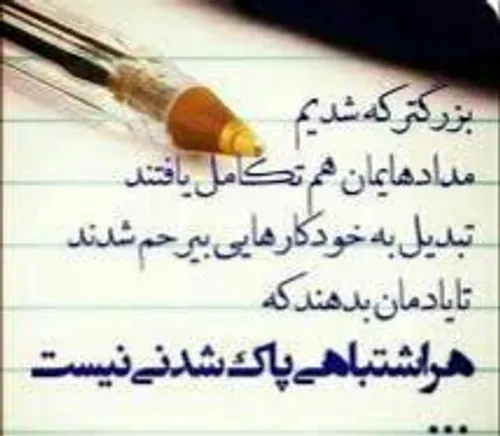 بزرگتر که شدیم
مدادهایمان هم تکامل یافتند
تبدیل به خودکارهایی بیرحم شدند
تا یادمان بدهند که
هر اشتباهی پاک شدنی نیست
...